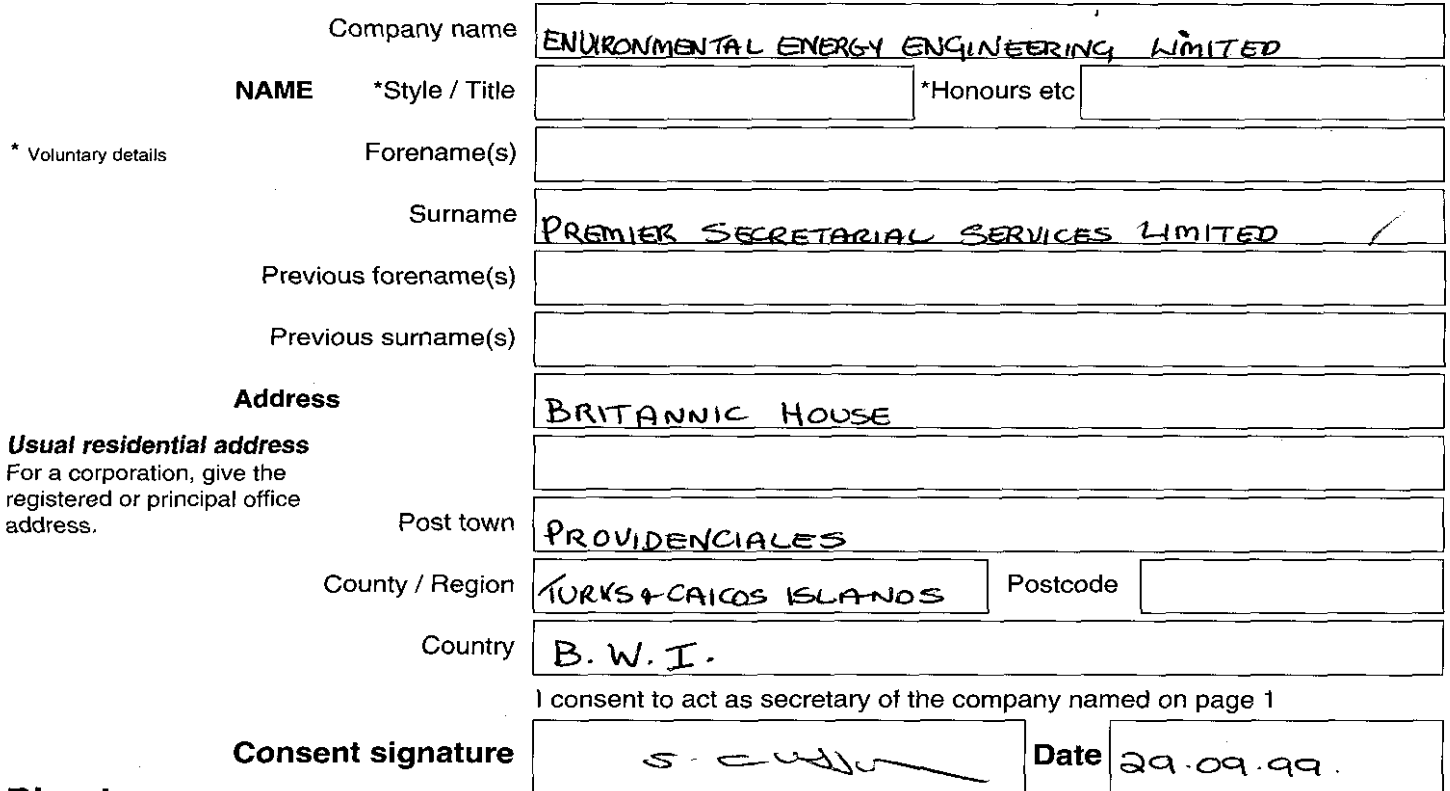 Company name ENVIRONMENTAL ENERGY ENGINEERING LIMITED
NAME *Style / Title *Honours etc
* Voluntary details Forename(s)
Surname PREMIER SECRETARIAL SERVICES LIMITED /
Previous forename(s)
Previous surname(s)
Address BRITANNIC HOUSE
Usual residential address
For a corporation, give the
registered or principal office
address.
Post town PROVIDENCIALES
County / Region TURKS & CAICOS ISLANDS Postcode
Country B. W. I.
I consent to act as secretary of the company named on page 1
Consent signature S. Date 29.09.99.